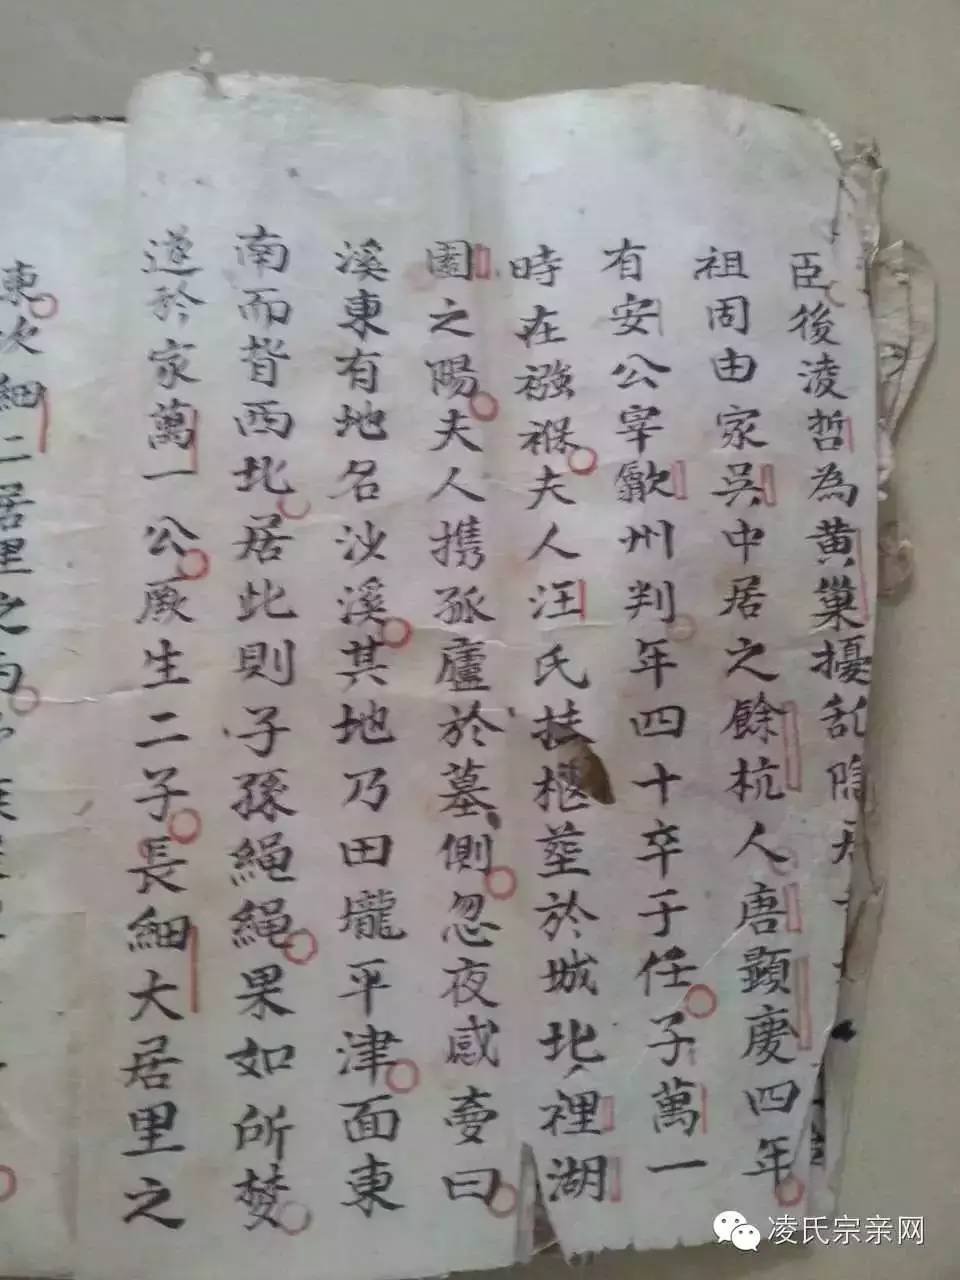 臣後凌哲為黃巢擾乱隐居
祖周由家吳中居之餘杭人唐顯慶四年
有安公宰歙州判年四十卒于任子萬一
時在襁褓夫人汪氏扶柩塟於城北裡湖
園之陽夫人携孤廬於墓側忽夜感夢曰
溪東有地名沙溪其地乃田壠平津面東
南而背西北居此則子孫繩繩果如所梦
遂於家萬一公厥生二子長細大居里之
東次細二居里之西
凌氏宗亲网